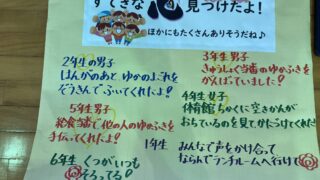 すてきな心見つけたよ!
ほかにもたくさんありそうだね♪
2年生の男子
はんがのあと ゆかのよごれを
ぞうきんでふいてくれたよ!
3年生男子
きゅうしょく当番のゆかふきを
がんばっていました!
5年生男子
給食当番で他の人のゆかふきを
手伝ってくれたよ!
4年生女子
体育館ちかくに空きかんが
おちているのを見てかたづけてくれた
6年生 くつがいつも
そろってる!
1年生 みんなで声をかけ合って
ならんでランチルームへ行けて